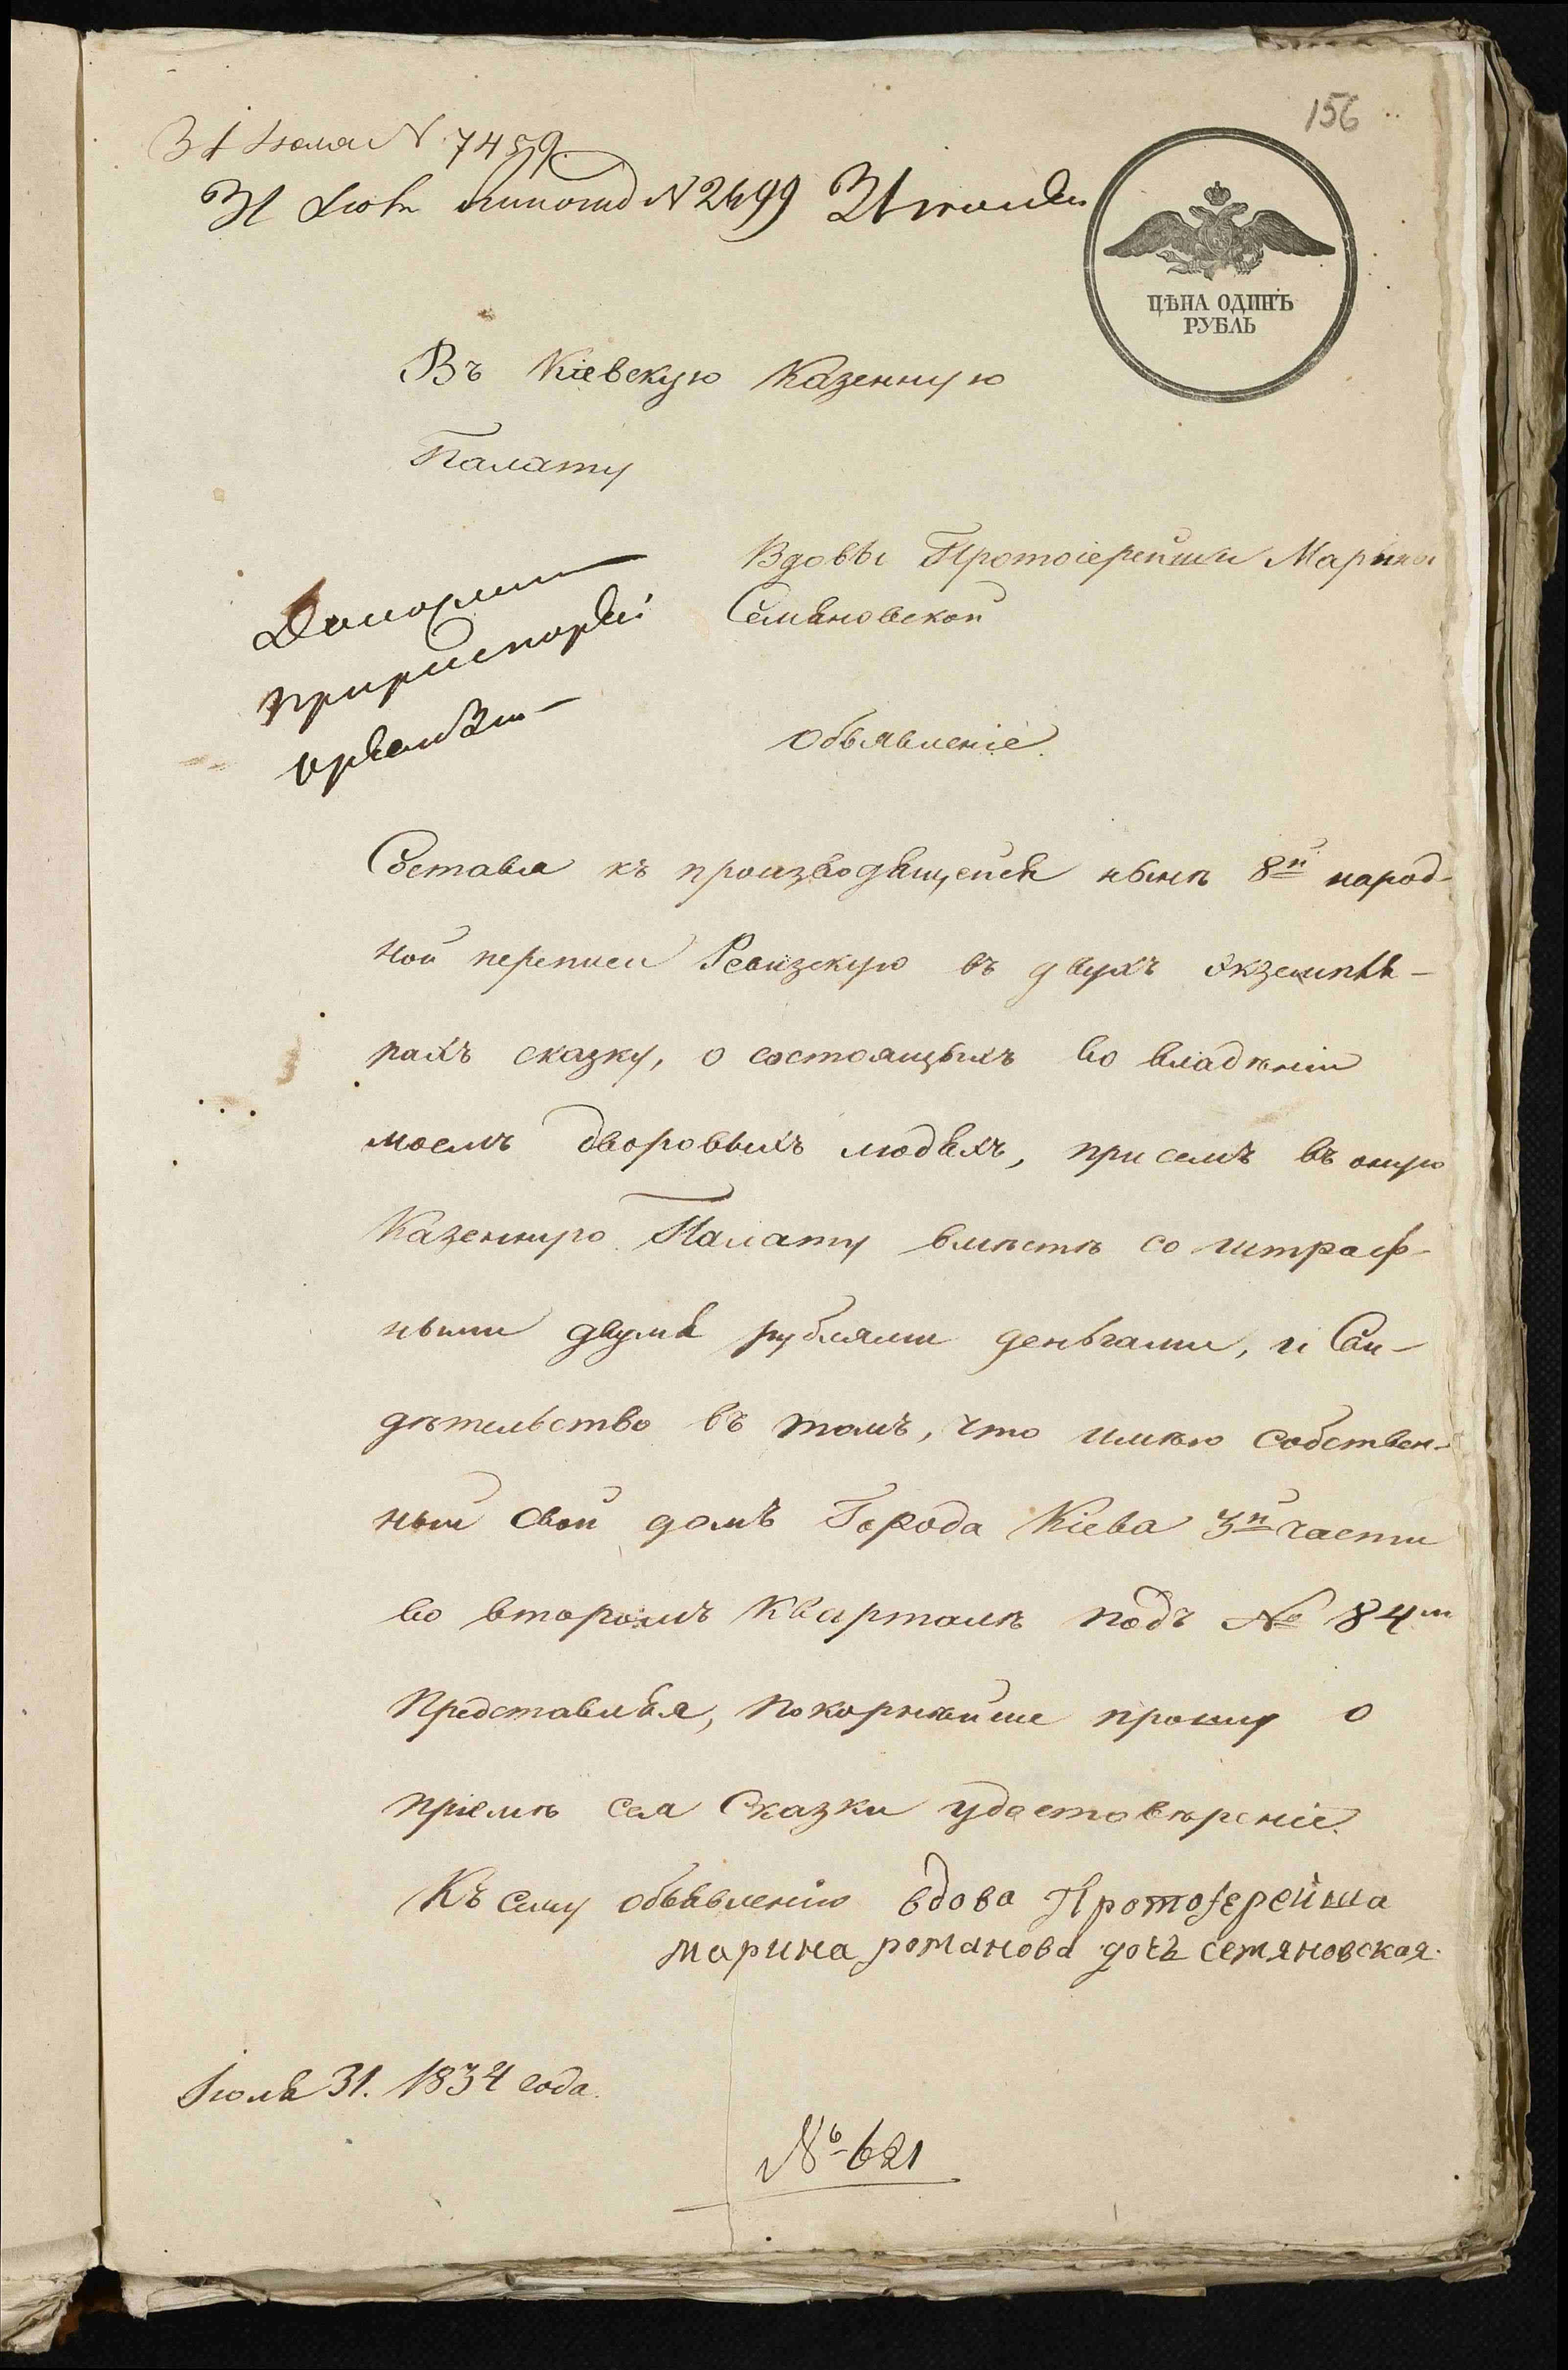 156
31 Июля N 7459.
31 N 2499 31 июля
ЦѢНА ОДИНЪ
РУБЛЬ
Въ Кіевскую Казенную
Палату
Вдовы Протоіерейши Марины
Семяновской
Объявленіе.
Составя къ производящейся нынѣ 8й народ-
ной переписи Ревизскую въ двухъ экземпля-
рахъ сказку, о состоящыхъ во владѣніи
моемъ дворовыхъ людяхъ, при семъ въ оную
Казенную Палату вмѣстѣ со штраф-
ными двумя рублями деньгами, и Сви-
дѣтельство въ томъ, что имѣю собствен-
ный свой домъ Города Кіева 3й части
во второмъ Кварталѣ подъ № 84м
Представляя, покорнѣйше прошу о
пріемѣ сея Сказки удостовѣреніе.
Къ сему объявленію вдова Протоіерейша
марина романова дочь семяновская.
Іюля 31. 1834 года.
№ 621